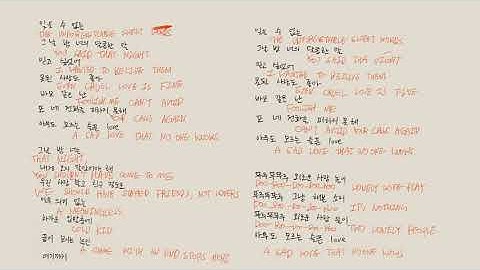 잊을 수 없는
THE UNFORGETTABLE SWEET
그날 밤 너의 달콤한 말
YOU SAID THAT NIGHT
믿고 싶었어
I WANTED TO BELIEVE THEM
못된 사랑도 좋아
EVEN CRUEL LOVE IS FINE
바보 같은 난
FOOLISH ME CAN'T AVOID
또 네 전화를 피하지 못해
YOUR CALL AGAIN
아무도 모르는 슬픈 love
A SAD LOVE THAT NO ONE KNOWS
그날 밤 너는
THAT NIGHT,
내게 오지 말았어야 해
YOU SHOULDN'T HAVE COME TO ME
우린 사랑 말고
WE SHOULD HAVE STAYED FRIENDS, NOT LOVERS
의미 없는
A MEANINGLESS
차가운
COLD KID
끝이 보이는
A GAME WITH AN END STOPS HERE
여기까지
잊을 수 없는
THE UNFORGETTABLE SWEET WORDS
그날 밤 너의 달콤한 말
YOU SAID THAT NIGHT
믿고 싶었어
I WANTED TO BELIEVE THEM
못된 사랑도 좋아
EVEN CRUEL LOVE IS FINE
바보 같은 난
FOOLISH ME
또 네 전화를 피하지 못해
CAN'T AVOID YOUR CALL AGAIN
아무도 모르는 슬픈 love
A SAD LOVE THAT NO ONE KNOWS
뚜루뚜루 외로운 사랑 놀이
DOO-ROO-DOO-ROO LONELY LOVE PLAY
뚜루뚜루 그냥 해본 소리
DOO-ROO-DOO-ROO IT'S NOTHING
뚜루뚜루 외로운 사람 둘이
DOO-ROO-DOO-ROO TWO LONELY PEOPLE
아무도 모르는 슬픈 love
A SAD LOVE THAT NO ONE KNOWS